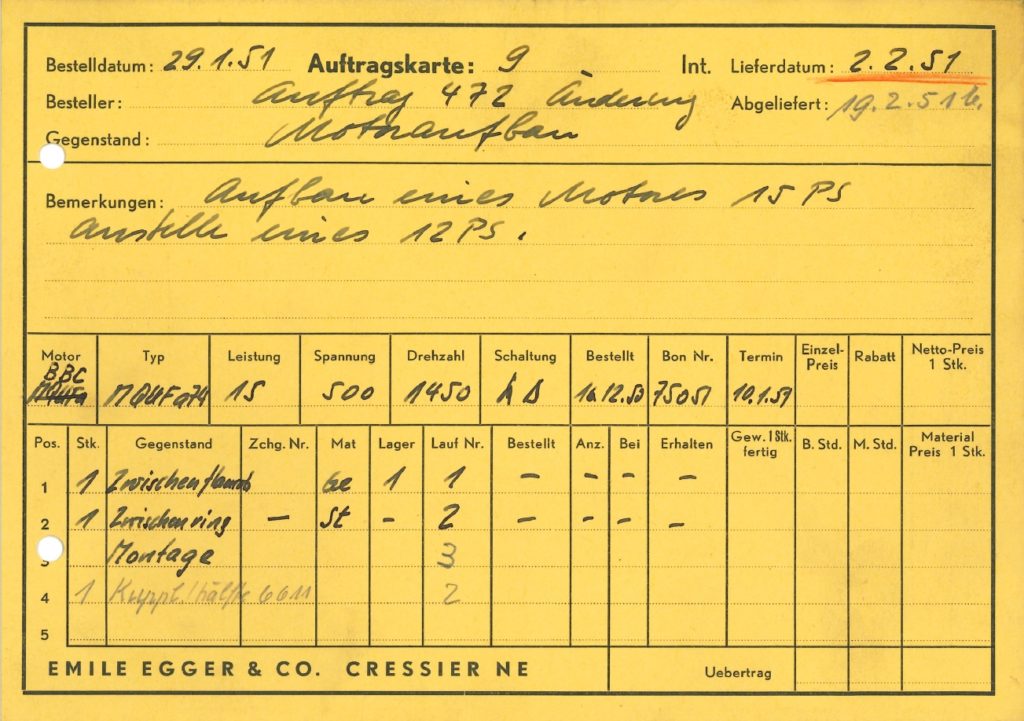 Bestelldatum: 29.1.51 Auftragskarte: 9 Int. Lieferdatum: 2.2.51
Besteller: Auftrag 472 Änderung Abgeliefert: 19.2.51
Gegenstand: Motoraufbau
Bemerkungen: Aufbau eines Motores 15 PS
anstelle eines 12 PS.
Motor Typ Leistung Spannung Drehzahl Schaltung Bestellt Bon Nr. Termin Einzel-Preis Rabatt Netto-Preis 1 Stk.
BBC
MQUFa74 15 500 1450 Δ 75051 10.1.51
Pos. Stk. Gegenstand Zchg. Nr. Mat Lager Lauf Nr. Bestellt Anz. Bei Erhalten Gew. 1 Stk. fertig B. Std. M. Std. Material Preis 1 Stk.
1 1 Zwischenflansch Ge 1 1 – – – –
2 1 Zwischenring – St – 2 – – – –
3 Montage 3
4 1 Kuppl.hälfte 6611 2
5
EMILE EGGER & CO. CRESSIER NE Uebertrag